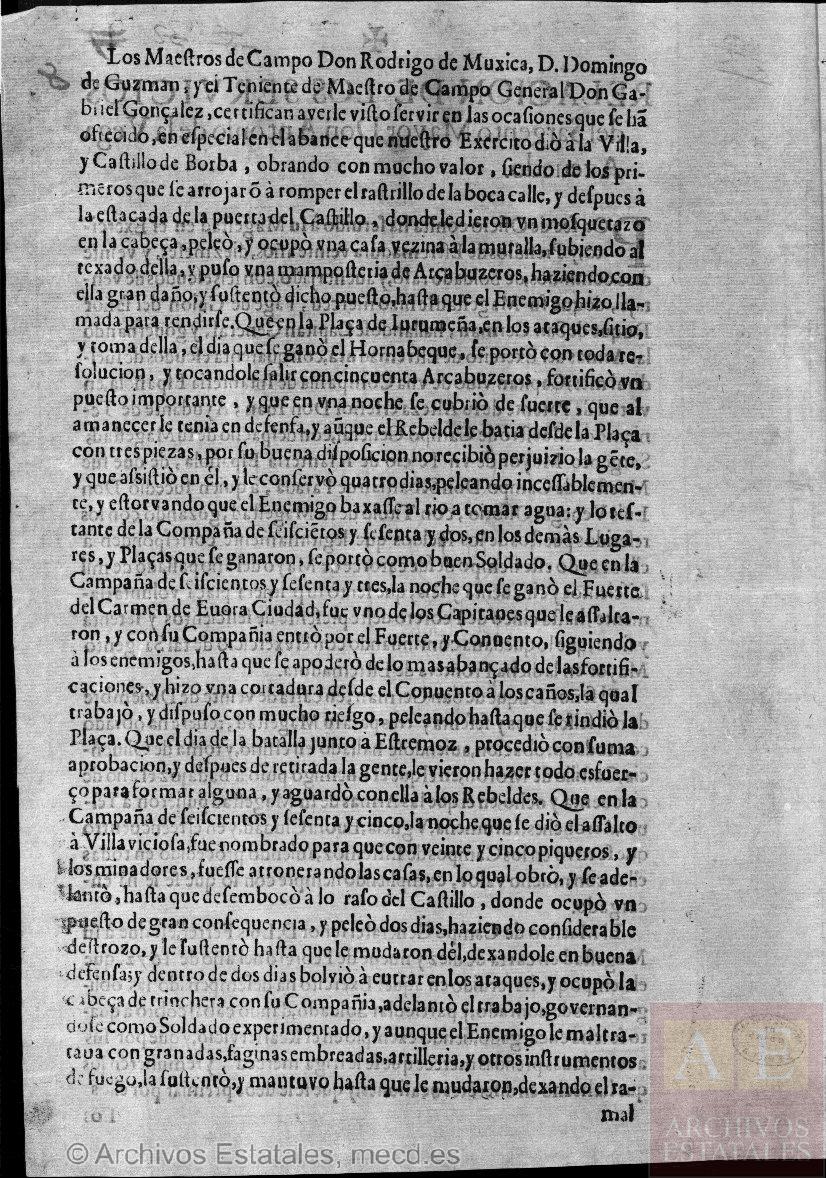 8
Los Maestros de Campo Don Rodrigo de Muxica, D. Domingo
de Guzman, y el Teniente de Maestro de Campo General Don Ga-
briel Gonçalez, certifican averle visto servir en las ocasiones que se hã
ofrecido, en especial en el abance que nuestro Exercito diò à la Villa,
y Castillo de Borba, obrando con mucho valor, siendo de los pri-
meros que se arrojarõ à romper el rastrillo de la boca calle, y despues à
la estacada de la puerta del Castillo, donde le dieron vn mosquetazo
en la cabeça, peleò, y ocupò vna casa vezina à la muralla, subiendo al
texado della, y puso vna mamposteria de Arcabuzeros, haziendo con
ella gran daño, y sustentò dicho puesto, hasta que el Enemigo hizo lla-
mada para rendirse. Que en la Plaça de Iurumeña, en los ataques, sitio,
y toma della, el dia que se ganò el Hornabeque, se portò con toda re-
solucion, y tocandole salir con cincuenta Arcabuzeros, fortificò vn
puesto importante, y que en vna noche se cubriò de suerte, que al
amanecer le tenia en defensa, y aũque el Rebelde le batia desde la Plaça
con tres piezas, por su buena disposicion no recibiò perjuizio la gẽte,
y que assistiò en èl, y le conservò quatro dias, peleando incessablemen-
te, y estorvando que el Enemigo baxasse al rio a tomar agua: y lo res-
tante de la Compaña de seisciẽtos y sesenta y dos, en los demàs Luga-
res, y Plaças que se ganaron, se portò como buen Soldado. Que en la
Campaña de seiscientos y sesenta y tres, la noche que se ganò el Fuerte
del Carmen de Euora Ciudad, fue vno de los Capitanes que le assalta-
ron, y con su Compañia entrò por el Fuerte, y Conuento, siguiendo
à los enemigos, hasta que se apoderò de lo mas abançado de las fortifi-
caciones, y hizo vna cortadura desde el Conuento à los caños, la qual
trabajò, y dispuso con mucho riesgo, peleando hasta que se rindiò la
Plaça. Que el dia de la batalla junto à Estremoz, procediò con suma
aprobacion, y despues de retirada la gente, le vieron hazer todo esfuer-
ço para formar alguna, y aguardò con ella à los Rebeldes. Que en la
Campaña de seiscientos y sesenta y cinco, la noche que se diò el assalto
à Villaviciosa, fue nombrado para que con veinte y cinco piqueros, y
los minadores, fuesse atronerando las casas, en lo qual obrò, y se ade-
lantò, hasta que desembocò à lo raso del Castillo, donde ocupò vn
puesto de gran consequencia, y peleò dos dias, haziendo considerable
destrozo, y le sustentò hasta que le mudaron dèl, dexandole en buena
defensa; y dentro de dos dias bolviò à entrar en los ataques, y ocupò la
cabeça de trinchera con su Compañia, adelantò el trabajo, governan-
dose como Soldado experimentado, y aunque el Enemigo le maltra-
taua con granadas, faginas embreadas, artilleria, y otros instrumentos
de fuego, la sustentò, y mantuvo hasta que le mudaron, dexando el ra-
mal
AE
ARCHIVOS
ESTATALES
© Archivos Estatales, mecd.es